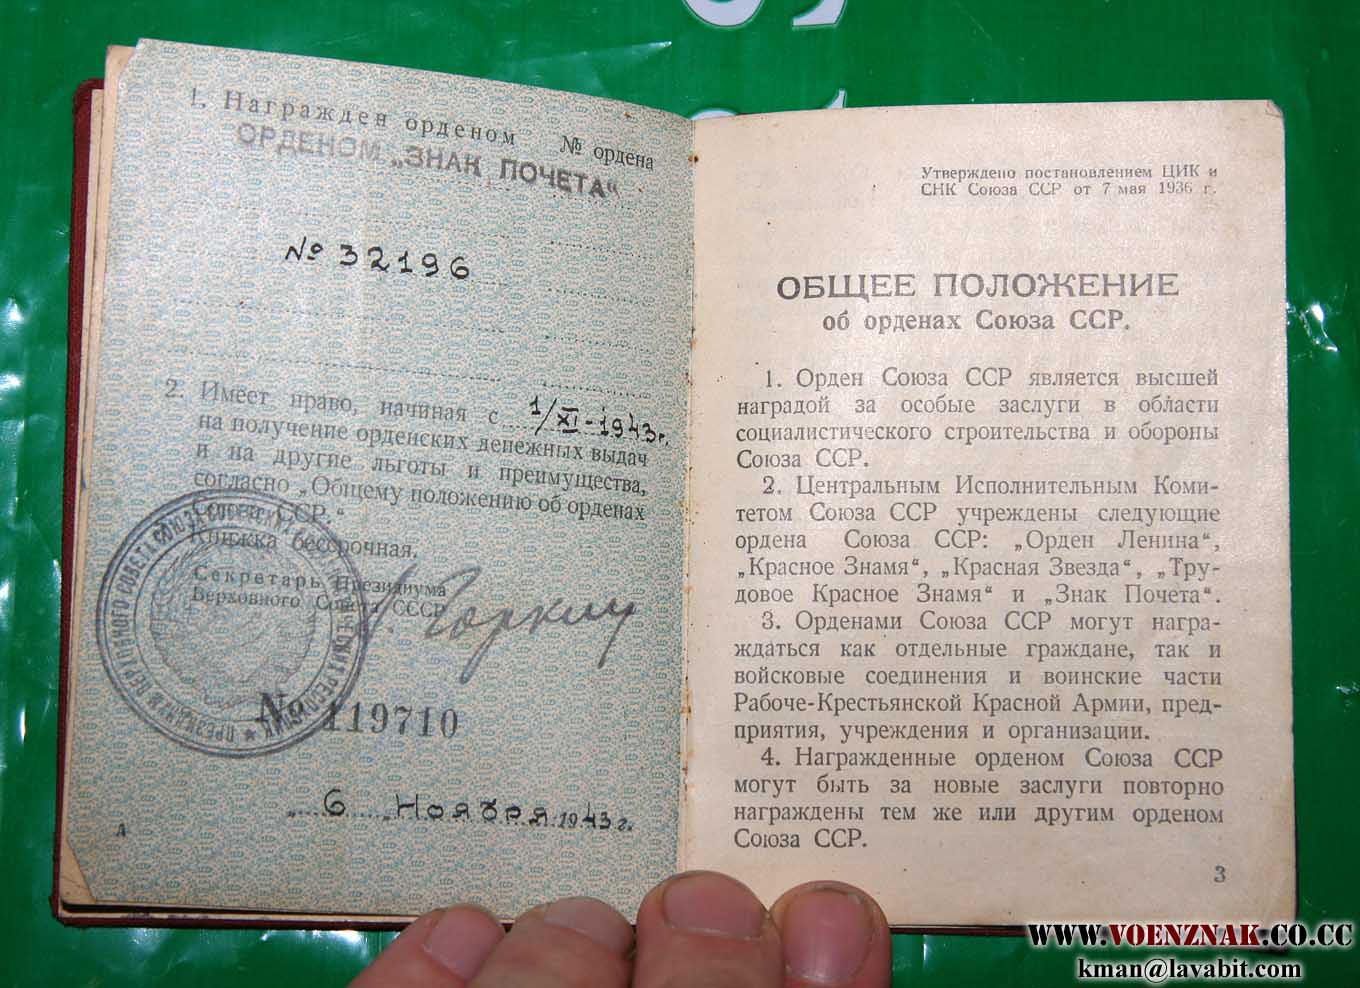 1. Награжден орденом № ордена
ОРДЕНОМ „ЗНАК ПОЧЕТА“
№ 32196
2. Имеет право, начиная с 1/XI-1943г.
на получение орденских денежных выдач
и на другие льготы и преимущества,
согласно „Общему положению об орденах
ССР.“
Книжка бессрочная.
Секретарь Президиума
Верховного Совета СССР
Горкин
№ 119710
„ 6 „ Ноября 1943 г.
А
Утверждено постановлением ЦИК и
СНК Союза ССР от 7 мая 1936 г.
ОБЩЕЕ ПОЛОЖЕНИЕ
об орденах Союза ССР.
1. Орден Союза ССР является высшей
наградой за особые заслуги в области
социалистического строительства и обороны
Союза ССР.
2. Центральным Исполнительным Коми-
тетом Союза ССР учреждены следующие
ордена Союза ССР: „Орден Ленина“,
„Красное Знамя“, „Красная Звезда“, „Тру-
довое Красное Знамя“ и „Знак Почета“.
3. Орденами Союза ССР могут награ-
ждаться как отдельные граждане, так и
войсковые соединения и воинские части
Рабоче-Крестьянской Красной Армии, пред-
приятия, учреждения и организации.
4. Награжденные орденом Союза ССР
могут быть за новые заслуги повторно
награждены тем же или другим орденом
Союза ССР.
3
WWW.VOENZNAK.CO.CC
kman@lavabit.com